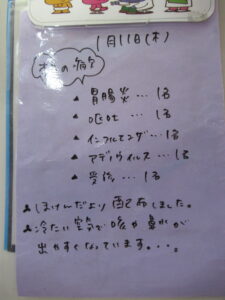 1月11日(木)
今日の病欠
▲ 胃腸炎…1名
▲ 嘔吐…1名
▲ インフルエンザ…1名
▲ アデノウイルス…1名
▲ 受診…1名
▲ ほけんだより配布しました。
▲ 冷たい空気で咳や鼻水が
出やすくなっています...。